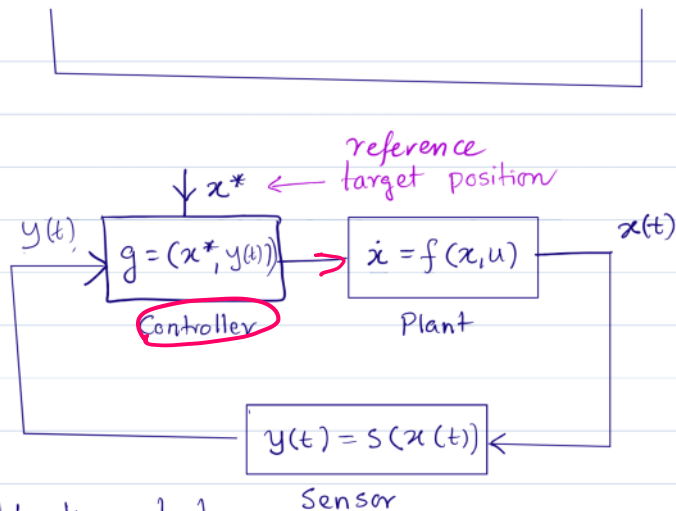 reference
target position
x*
y(t)
x(t)
g = (x*, y(t))
ẋ = f(x,u)
Controller
Plant
y(t) = S(x(t))
Sensor